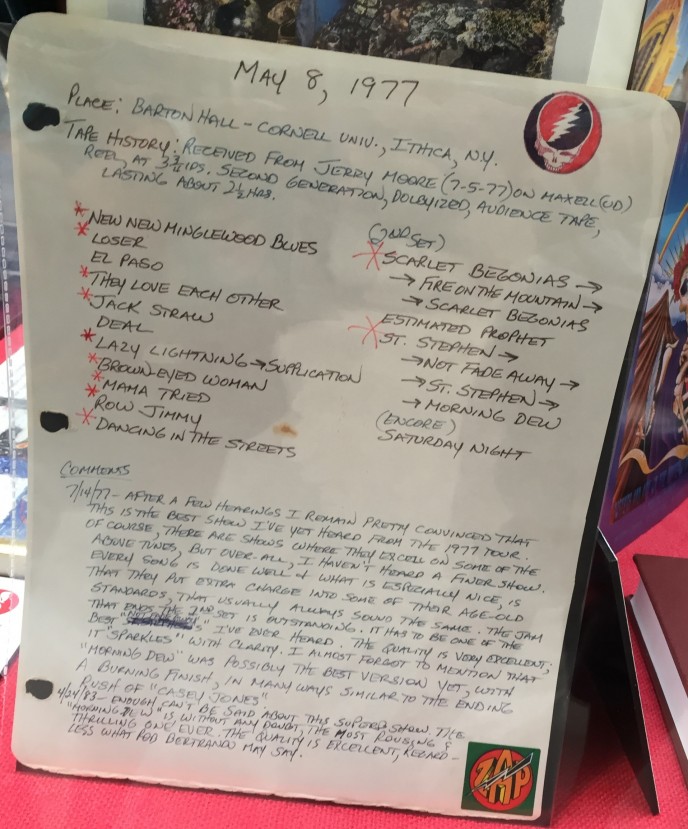 MAY 8, 1977
PLACE: BARTON HALL - CORNELL UNIV., ITHICA, N.Y.
TAPE HISTORY: RECEIVED FROM JERRY MOORE (7-5-77) ON MAXELL (UD)
REEL, AT 3¾ IPS. SECOND GENERATION, DOLBYIZED, AUDIENCE TAPE,
LASTING ABOUT 2½ HRS.
* NEW NEW MINGLEWOOD BLUES
* LOSER
EL PASO
* THEY LOVE EACH OTHER
* JACK STRAW
DEAL
* LAZY LIGHTNING → SUPPLICATION
* BROWN-EYED WOMAN
* MAMA TRIED
ROW JIMMY
* DANCING IN THE STREETS
(2ND SET)
* SCARLET BEGONIAS →
→ FIRE ON THE MOUNTAIN →
→ SCARLET BEGONIAS
ESTIMATED PROPHET
* ST. STEPHEN →
→ NOT FADE AWAY →
→ ST. STEPHEN →
→ MORNING DEW
(ENCORE)
SATURDAY NIGHT
COMMENTS
7/14/77 - AFTER A FEW HEARINGS I REMAIN PRETTY CONVINCED THAT
THIS IS THE BEST SHOW I'VE YET HEARD FROM THE 1977 TOUR.
OF COURSE, THERE ARE SHOWS WHERE THEY EXCEL ON SOME OF THE
ABOVE TUNES, BUT OVER-ALL, I HAVEN'T HEARD A FINER SHOW.
EVERY SONG IS DONE WELL & WHAT IS ESPECIALLY NICE, IS
THAT THEY PUT EXTRA CHARGE INTO SOME OF THEIR AGE-OLD
STANDARDS, THAT USUALLY ALWAYS SOUND THE SAME. THE JAM
THAT ENDS THE 2ND SET IS OUTSTANDING. IT HAS TO BE ONE OF THE
BEST I'VE EVER HEARD. THE QUALITY IS VERY EXCELLENT;
IT "SPARKLES" WITH CLARITY. I ALMOST FORGOT TO MENTION THAT
"MORNING DEW" WAS POSSIBLY THE BEST VERSION YET, WITH
A BURNING FINISH, IN MANY WAYS SIMILAR TO THE ENDING
RUSH OF "CASEY JONES"
4/24/83 - ENOUGH CAN'T BE SAID ABOUT THIS SUPERB SHOW. THE
"MORNING DEW" IS, WITHOUT ANY DOUBT, THE MOST ROUSING &
THRILLING ONE EVER. THE QUALITY IS EXCELLENT, REGARD-
LESS WHAT ROB BERTRANDO MAY SAY.